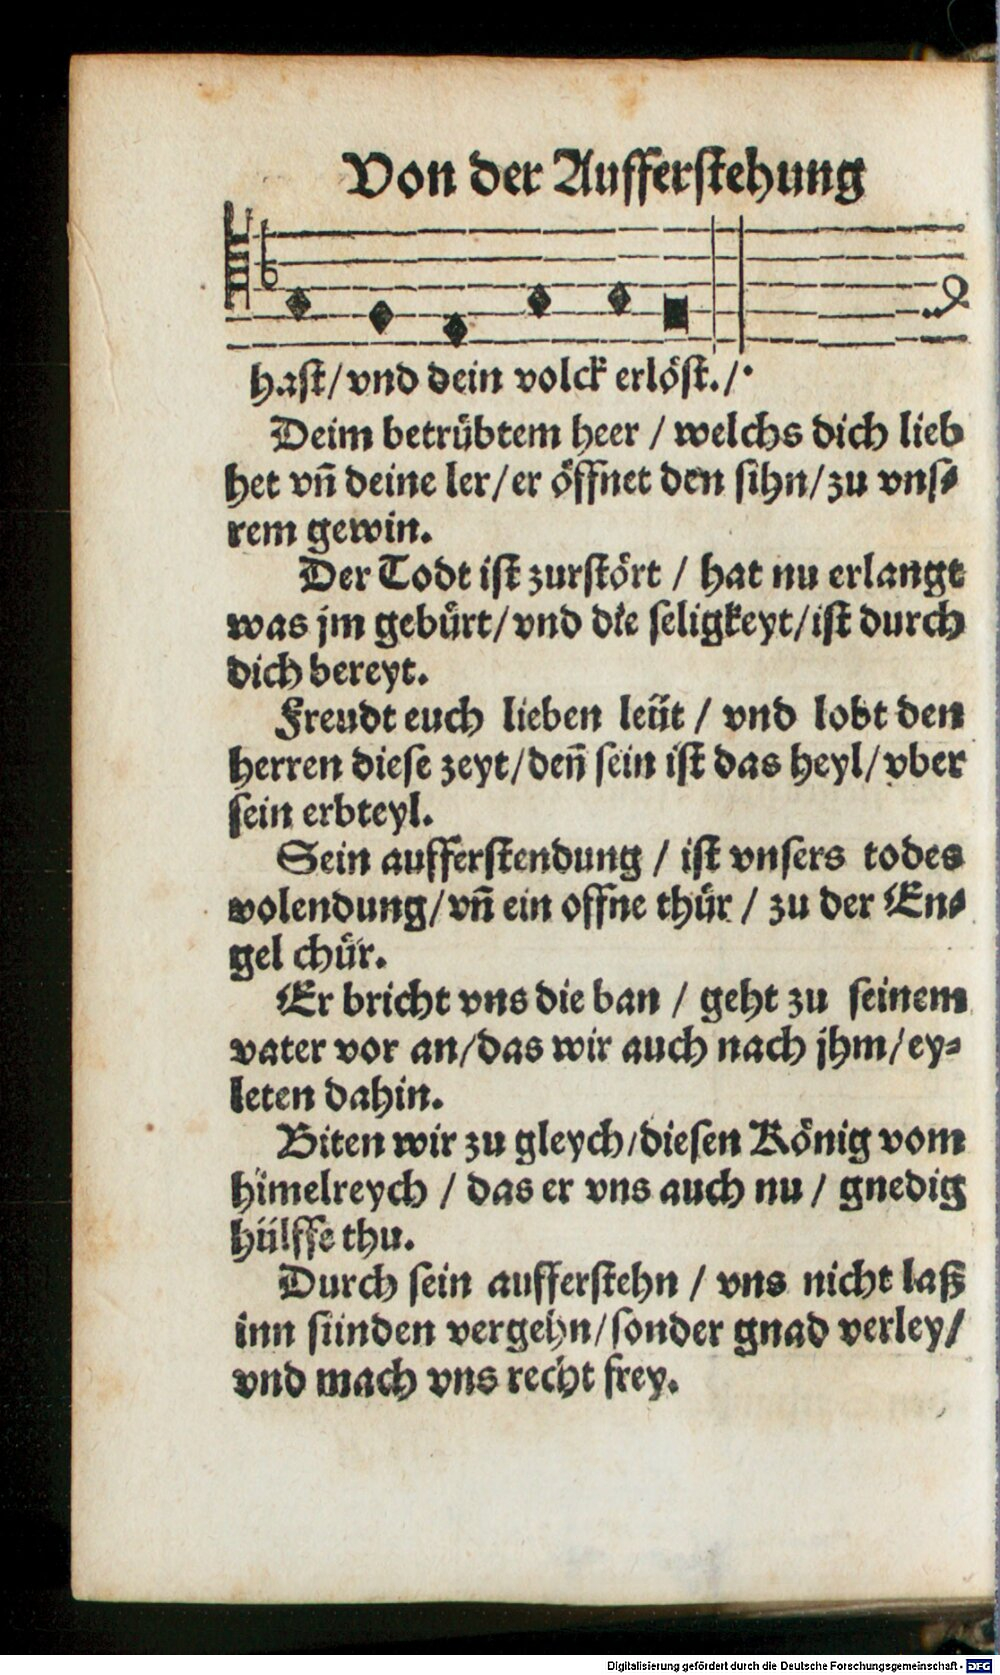 Von der Aufferstehung
hast/vnd dein volck erlöst./·
Deim betrübtem heer / welchs dich lieb
het vn̄ deine ler/er öffnet den sihn/zu vns⸗
rem gewin.
Der Todt ist zurstört / hat nu erlangt
was jm gebürt/vnd die seligkeyt/ist durch
dich bereyt.
Freudt euch lieben leüt / vnd lobt den
herren diese zeyt/den̄ sein ist das heyl/vber
sein erbteyl.
Sein aufferstendung / ist vnsers todes
volendung/vn̄ ein offne thür / zu der En⸗
gel chür.
Er bricht vns die ban / geht zu seinem
vater vor an/das wir auch nach jhm/ey⸗
leten dahin.
Biten wir zu gleych/diesen König vom
hīmelreych / das er vns auch nu / gnedig
hülffe thu.
Durch sein aufferstehn / vns nicht laß
inn sünden vergehn/sonder gnad verley/
vnd mach vns recht frey.
Digitalisierung gefördert durch die Deutsche Forschungsgemeinschaft - DFG